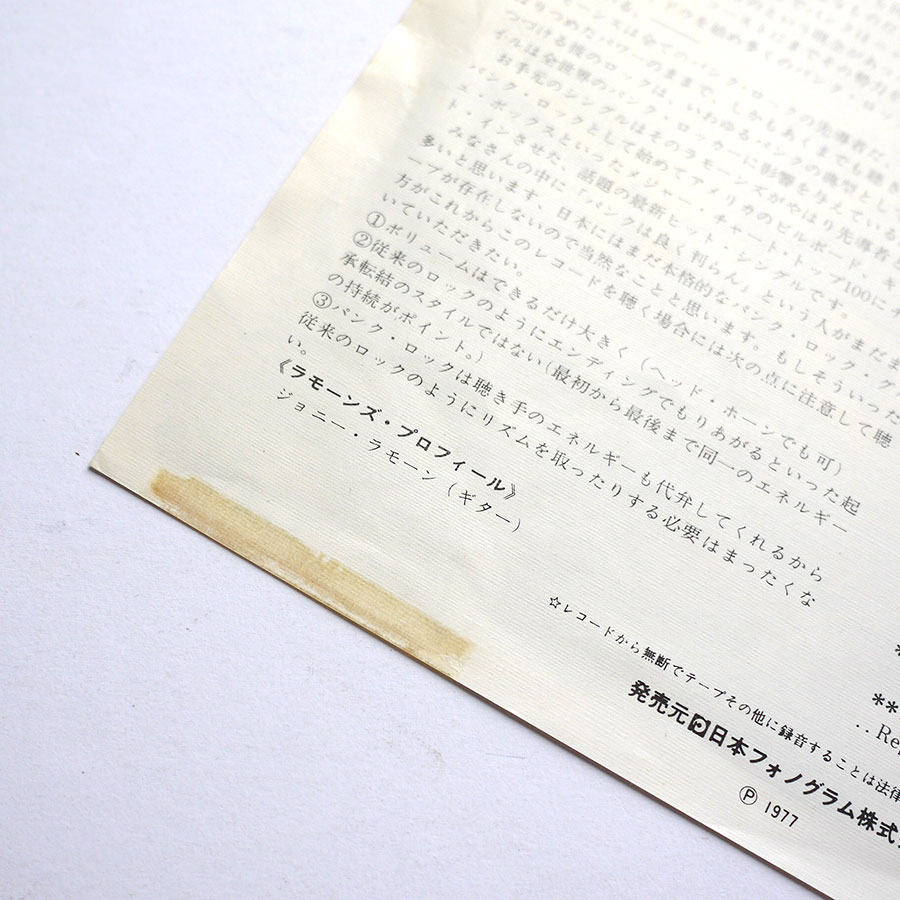 を始め多くのパンク・ロッ
ラモーンズは全てのパンク・ロックの先導者だ
つめたパワーのままで、しかもあくまでも聴き
つづける彼のロックは、いわゆるパンクの典型として
イルは全世界のパンク・ロッカーに影響を与えている
お手元のシングルはそのラモーンズがやはり先導者
パンク・ロックとして始めてアメリカのビルボード・キ
ュ・ボックスといったメジャー・チャートのトップ100に
ト・インさせた、話題の最新ヒット・シングルです。
みなさんの中に「パンクは良く判らん」という人がまだま
多いと思います、日本にはまだ本格的なパンク・ロック・グ
ープが存在しないので当然なことと思います。もしそういった
方がこれからこのレコードを聴く場合には次の点に注意して聴
いていただきたい。
①ボリュームはできるだけ大きく(ヘッド・ホーンでも可)
②従来のロックのようにエンディングでもりあがるといった起
承転結のスタイルではない(最初から最後まで同一のエネルギー
の持続がポイント。)
③パンク・ロックは聴き手のエネルギーも代弁してくれるから
従来のロックのようにリズムを取ったりする必要はまったくな
い。
《ラモーンズ・プロフィール》
ジョニー・ラモーン(ギター)
*
**
..Rep
☆レコードから無断でテープその他に録音することは法律
発売元 日本フォノグラム株式
Ⓟ 1977